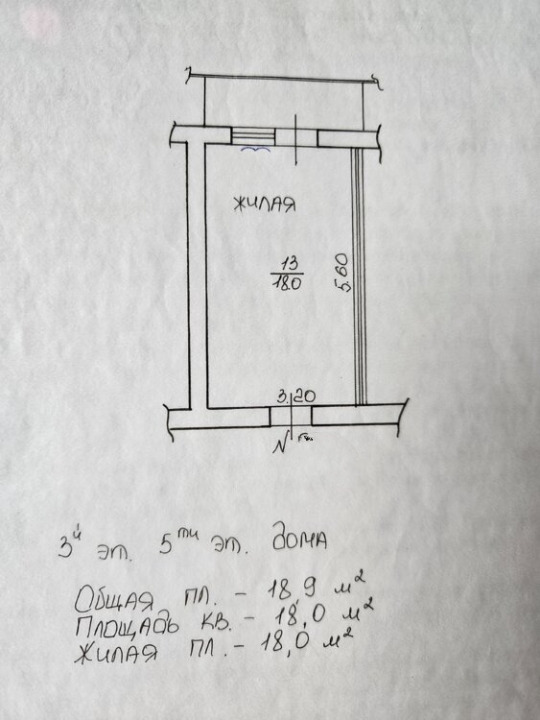 жилая
13
18.0
5.60
3.20
N
3й эт. 5ти эт. дома
Общая пл. - 18,9 м²
Площадь кв. - 18,0 м²
Жилая пл. - 18,0 м²